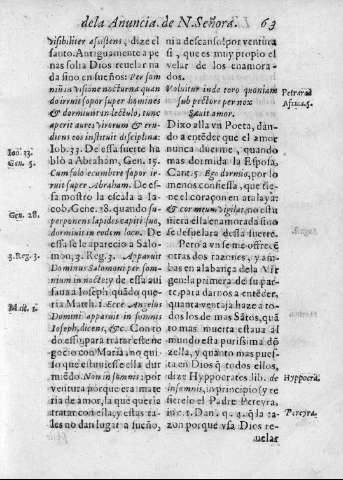 dela Anuncia. de N. Señorá. 63
visibiliter assistens, dize el
santo. Antiguamente a pe
nas solia Dios reuelar na
da sino en sueños: Per som
niũ in visione nocturna quan
do irruit sopor super homines
& dormiunt in lectulo, tunc
aperit aures virorum & eru-
diens eos instituit disciplina:
Iob. 33. De essa suerte ha
blò a Abraham, Gen. 15.
Cum sol occumbere sopor ir-
ruit super Abraham. De es-
sa mostro la escala a Ia-
cob. Gene. 28. quando su-
per lapides capiti suo,
dormiuit in eodem loco. De
essa se le aparecio a Salo-
mon, 3. Reg. 3. Apparuit
Dominus Salomoni per som-
nium in nocte: y de essa aui
sauna Ioseph quãdo que-
ria Matth. 1. Ecce Angelus
Domini apparuit in somnis
Ioseph, dicens, &c. Con to
do esso para tratar este ne
gocio con Maria, no qui-
so que estuuiesse ella dur
miẽdo. Non in somnis: por
ventura porque era mate
ria de amor, la que queria
tratar con ella; y estas ta-
les no dan lugar a sueño,
Iob. 33.
Gen. 5.
Gen. 28.
3. Reg. 3.
Mat. 1.
ni a descanso! por ventura
si, que es muy propio el
velar de los enamora-
dos.
Voluitur indo toro quoniam
sub pectore per nox
Sæuit amor.
Dixo alla vn Poeta, dan-
do a entẽder que el amor
nunca duerme, quando
mas dormida la Esposa.
Cant. 5. Ego dormio, por lo
menos confiessa, que tie-
ne el coraçon en atalaya:
& cor meum vigilat, no estu
uiera ella enamorada sino
se desuelara dessa suerte.
Pero a vn se me ofrecẽ
otras dos razones, y am-
bas en alabãça dela Vir
gen: la primera de su par
te, para darnos a entẽder,
quanta ventaja haze a to-
dos los de mas Sãtos, quã
to mas muerta estaua al
mundo esta purissima dõ
zella, y quanto mas pues-
ta en Dios q̃ todos ellos,
dize Hyppocrates lib. de
insomnis, in principio (y re
fierelo el Padre Pereyra,
in c. 1. Dan. q. 4. q̃ la ra-
zon por que vsa Dios re-
uelar
Petrarca
Hyppocra.
Pereyra.